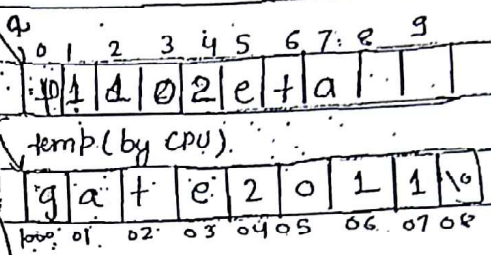 a
0 1 2 3 4 5 6 7 8 9
1 1 0 2 e t a
temp (by CPU).
g a t e 2 0 1 1 \0
1000 01 02 03 04 05 06 07 08